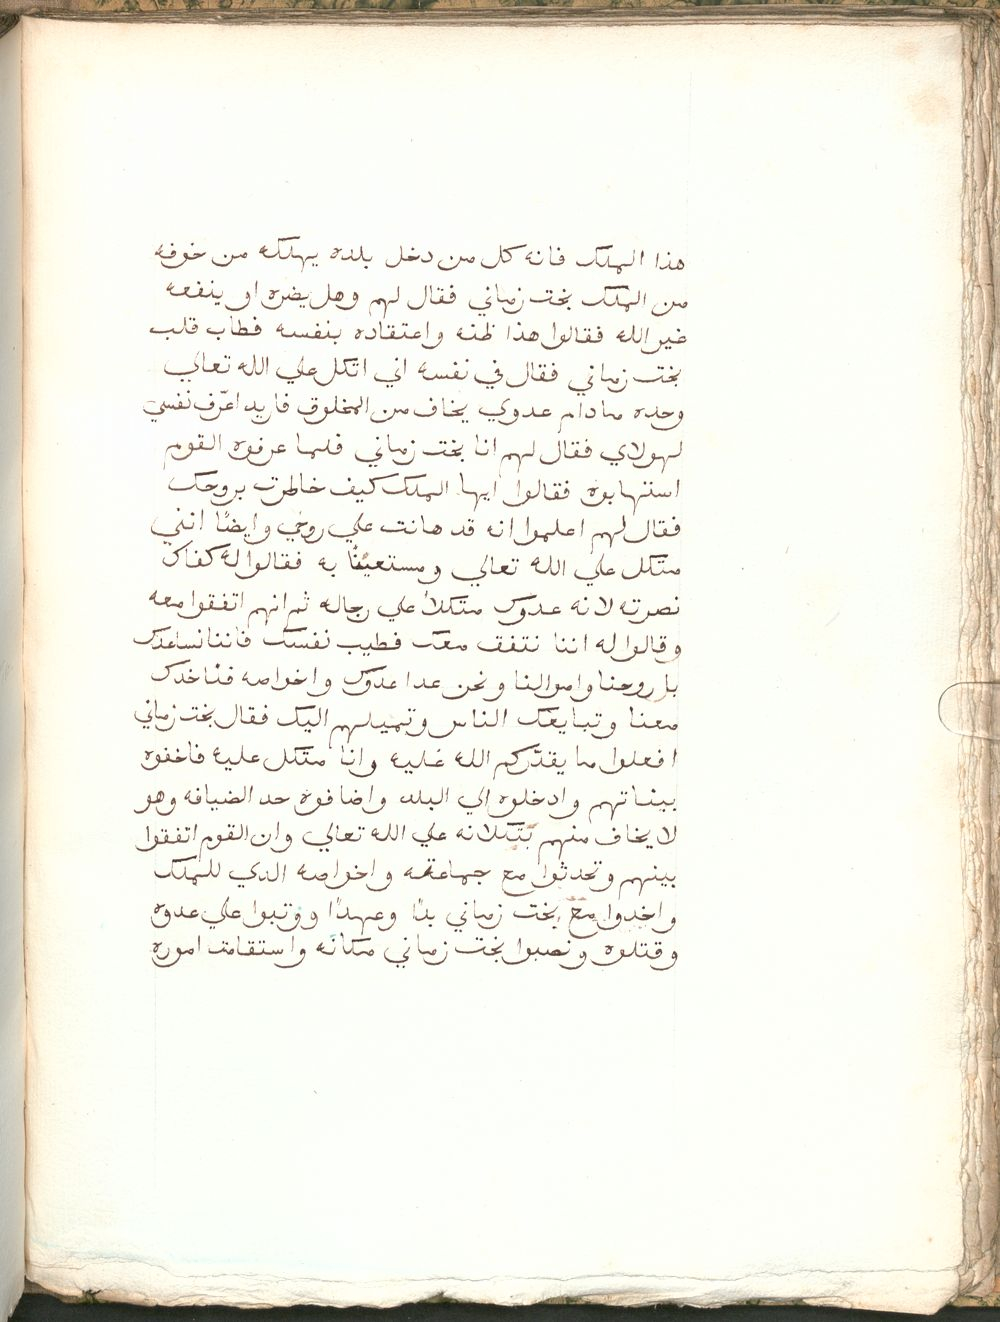 هذا الملك فانه كل من دخل بلده يهلكه من خوفه
من الملك بخت زماني فقال لهم وهل يضره او ينفعه
غير الله فقالوا هذا ظنه واعتقاده بنفسه فطاب قلب
بخت زماني فقال في نفسه اني اتكل علي الله تعالي
وحده مادام عدوي يخاف من المخلوق فاريد اعرّف نفسي
لهولاي فقال لهم انا بخت زماني فلما عرفوه القوم
استهابوه فقالوا ايها الملك كيف خاطرت بروحك
فقال لهم اعلموا انه قد هانت علي روحي وايضًا انني
متكل علي الله تعالي ومستعينًا به فقالوا له كفاك
نصرته لانه عدوك متكلاً علي رجاله ثم انهم اتفقوا معه
وقالوا له اننا نتفق معك فطيب نفسك فاننا نساعدك
بارواحنا واموالنا ونحن عدا عدوك واخواصه فناخدك
معنا وتبايعك الناس وتميلهم اليك فقال بخت زماني
افعلوا ما يقدّركم الله عليه وانا متكل عليه فاخفوه
ببناتهم وادخلوه الي البلد واضافوه حد الضيافه وهو
لا يخاف منهم بتكلانه علي الله تعالي وان القوم اتفقوا
بينهم وتحدثوا مع جماعته واخواصه الدي للملك
واخدوا مع بخت زماني بدًا وعهدًا ووتبوا علي عدوه
وقتلوه ونصبوا بخت زماني مكانه واستقامت اموره